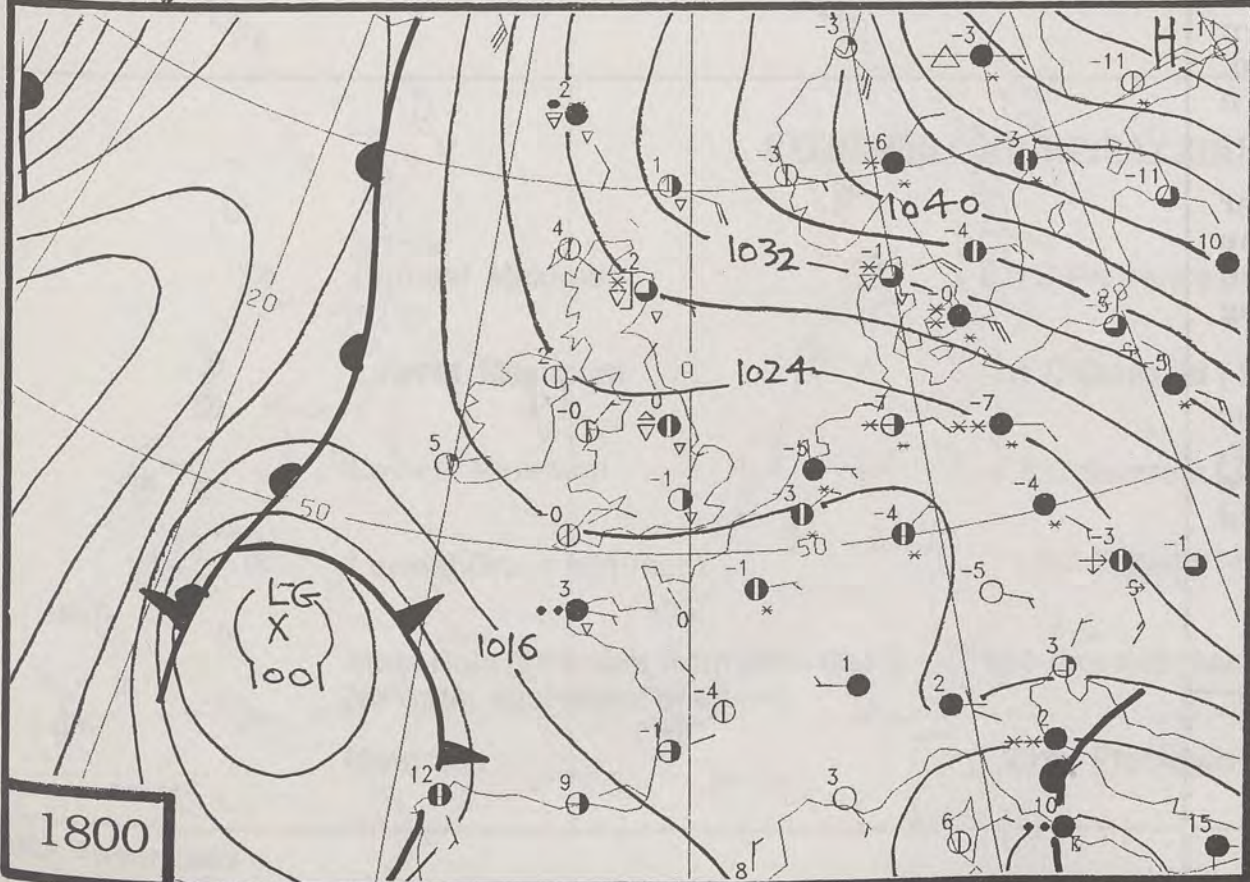 -3
-3
H
-11
-11
2
-6
-3
1
-3
-11
1040
4
-4
-10
2
1032
-1
20
-0
-3
2
0
1024
-5
-0
0
-7
-7
5
-5
-1
3
-4
-4
0
50
50
-3
-1
-1
-5
3
LG
X
1001
0
1016
3
1
-4
2
2
-1
12
9
3
10
6
15
8
1800